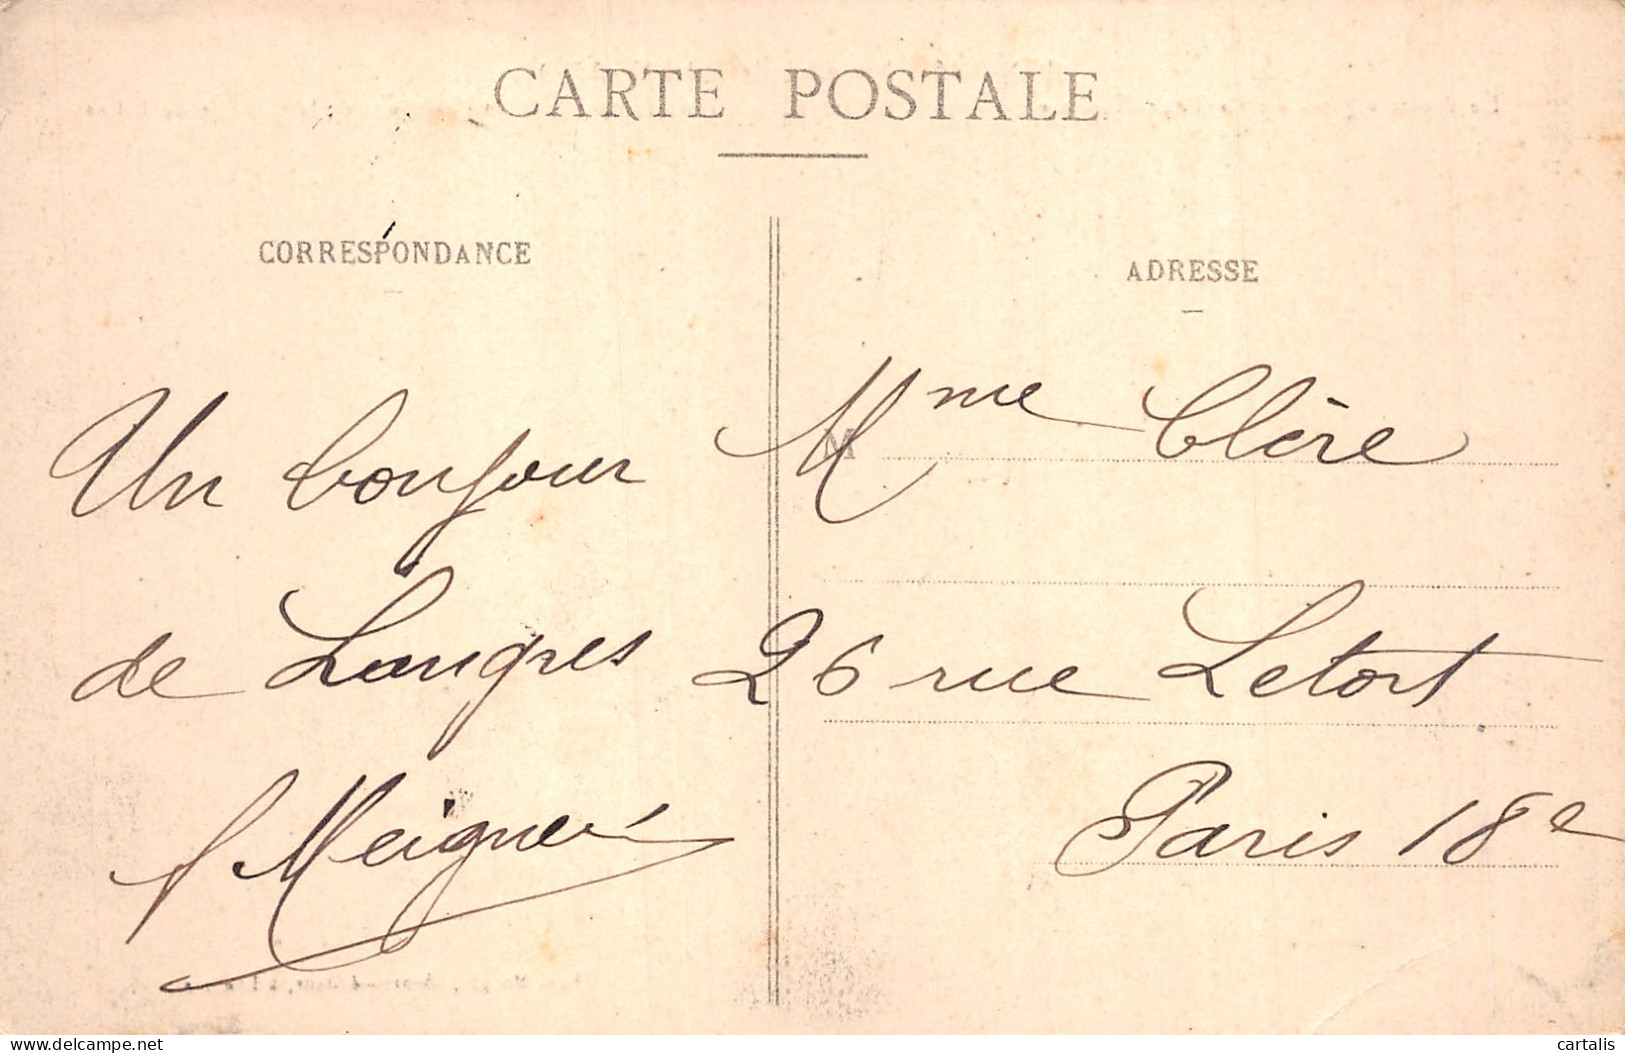 CARTE POSTALE
CORRESPONDANCE
ADRESSE
Un bonjour
de Langres
Mme Clère
26 rue Letort
Paris 18e
delcampe.net
cartalis